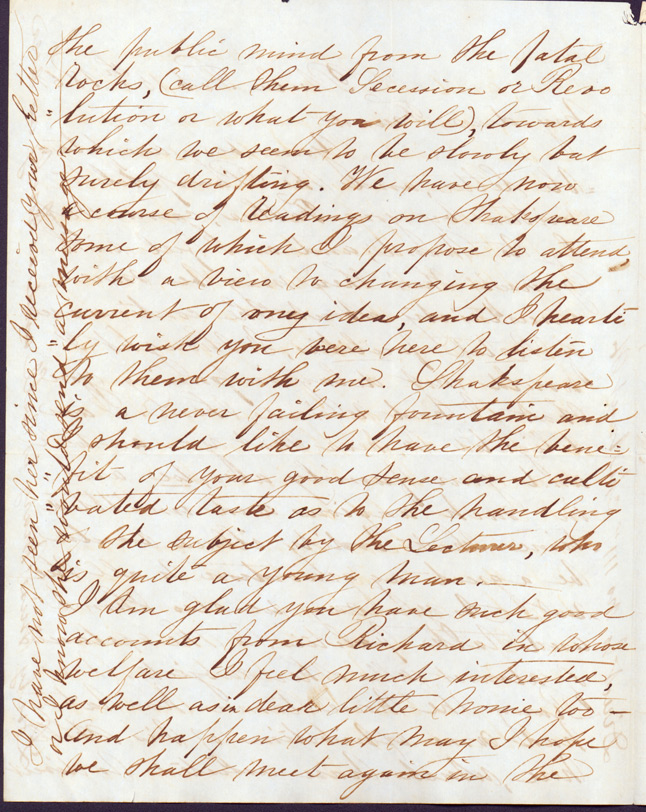 the public mind from the fatal
rocks, (call them Secession or Revo
lution or what you will), towards
which we seem to be slowly but
surely drifting. We have now
a course of Readings on Shakspeare
some of which I propose to attend,
with a view to changing the
current of my ideas, and I hearti
ly wish you were here to listen
to them with me. Shakspeare
is a never failing fountain and
I should like to have the bene=
fit of your good sense and culti
vated taste as to the handling
of the subject by the Lecturer, who
is quite a young man.
I am glad you have such good
accounts from Richard in whose
welfare I feel much interested,
as well as in dear little homie too —
And happen what may I hope
we shall meet again in the
I have not seen her since I received your letter
or I know she would send